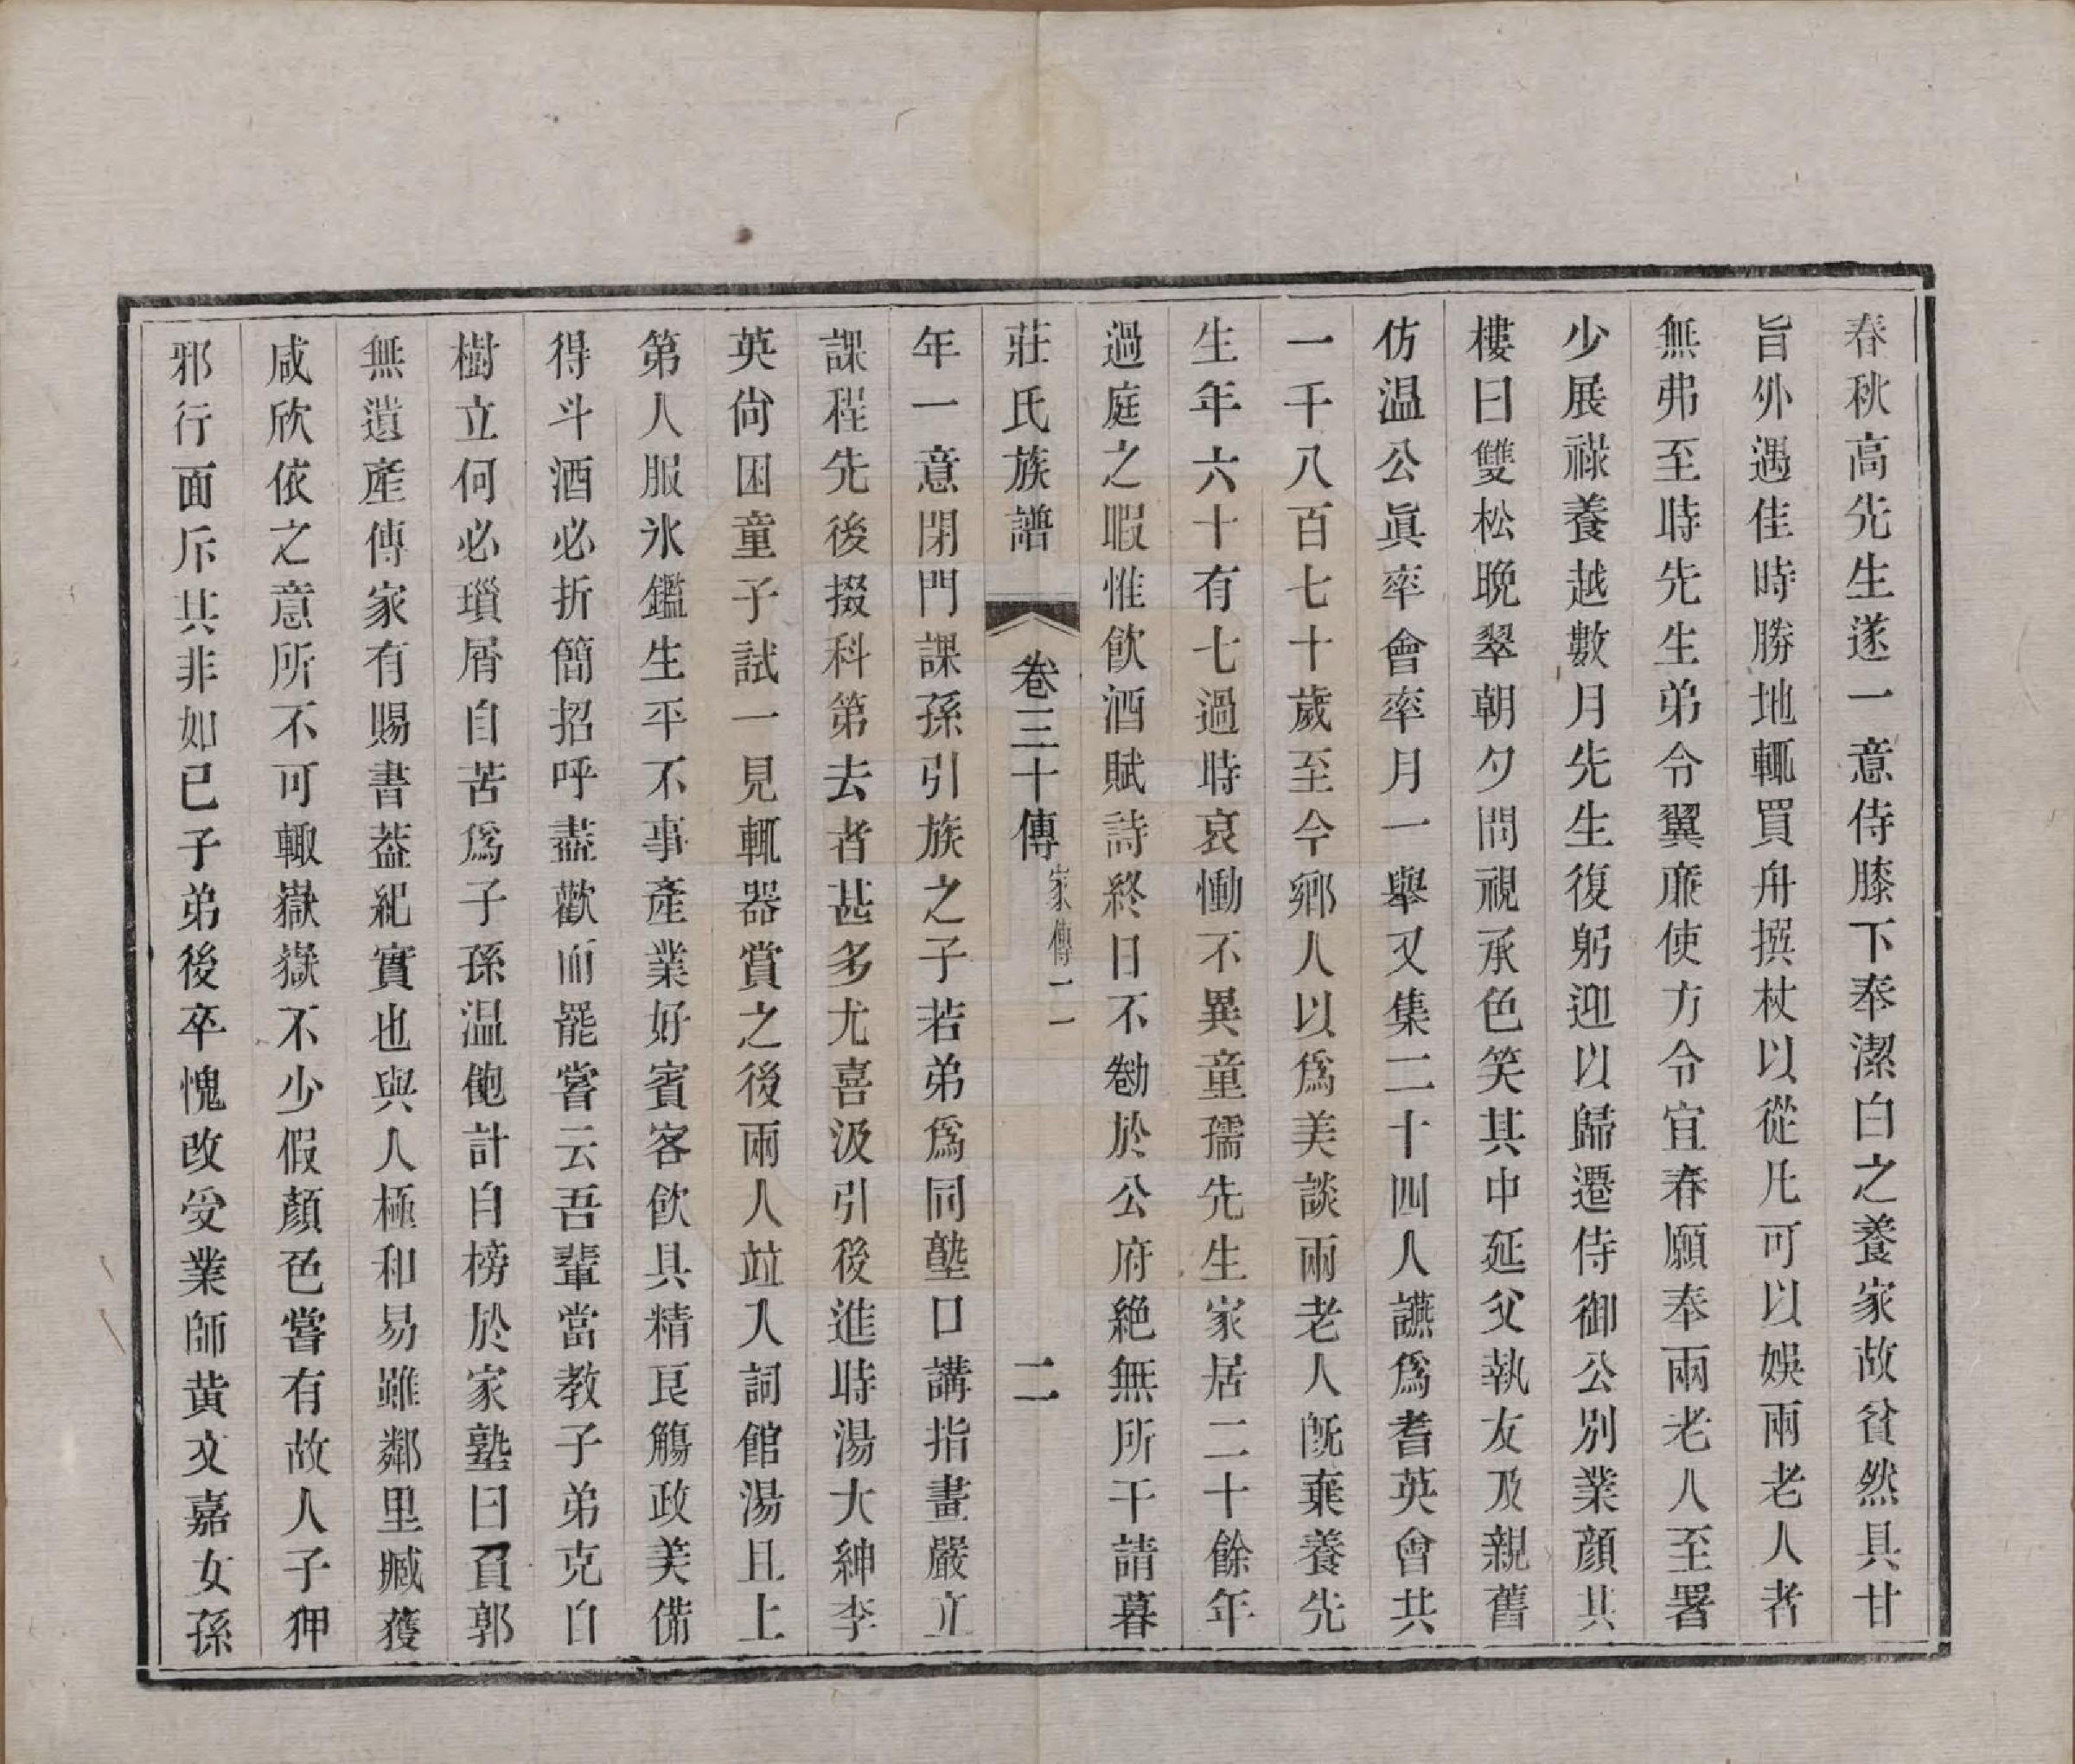 春秋高先生遂一意侍膝下奉潔白之養家故貧然具甘
旨外遇佳時勝地輒買舟撰杖以從凡可以娛兩老人者
無弗至時先生弟令翼廉使方令宜春願奉兩老人至署
少展祿養越數月先生復躬迎以歸遷侍御公別業顏其
樓曰雙松晚翠朝夕問視承色笑其中延父執友及親舊
仿温公眞率會率月一舉又集二十四人讌爲耆英會共
一千八百七十歲至今鄉人以爲美談兩老人旣棄養先
生年六十有七過時哀慟不異童孺先生家居二十餘年
過庭之暇惟飮酒賦詩終日不勌於公府絕無所干請暮
莊氏族譜 卷三十傳 家傳二 二
年一意閉門課孫引族之子若弟爲同塾口講指畫嚴立
課程先後掇科第去者甚多尤喜汲引後進時湯大紳李
英尙困童子試一見輒器賞之後兩人竝入詞館湯且上
第人服氷鑑生平不事產業好賓客飮具精良觴政美備
得斗酒必折簡招呼盡歡而罷嘗云吾輩當教子弟克自
樹立何必瑣屑自苦爲子孫温飽計自榜於家塾曰負郭
無遺產傳家有賜書葢紀實也與人極和易雖鄰里臧獲
咸欣依之意所不可輙嶽嶽不少假顏色嘗有故人子狎
邪行面斥其非如已子弟後卒愧改受業師黄文嘉女孫